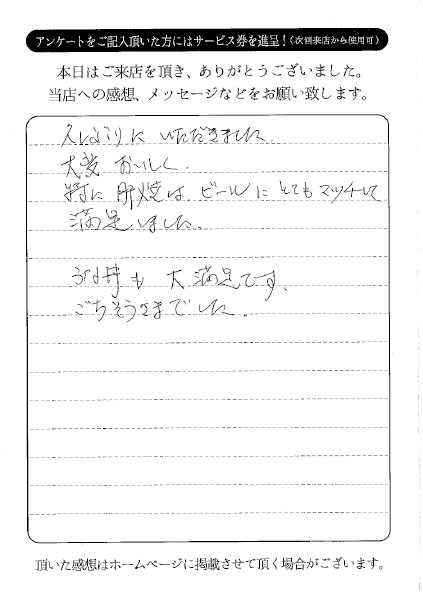 アンケートをご記入頂いた方にはサービス券を進呈！（次回来店から使用可）
本日はご来店を頂き、ありがとうございました。
当店への感想、メッセージなどをお願い致します。
久しぶりに いただきました
大変 おいしく
特に 肝焼は ビールに とてもマッチして
満足しました。
うな丼も 大満足です。
ごちそうさまでした。
頂いた感想はホームページに掲載させて頂く場合がございます。